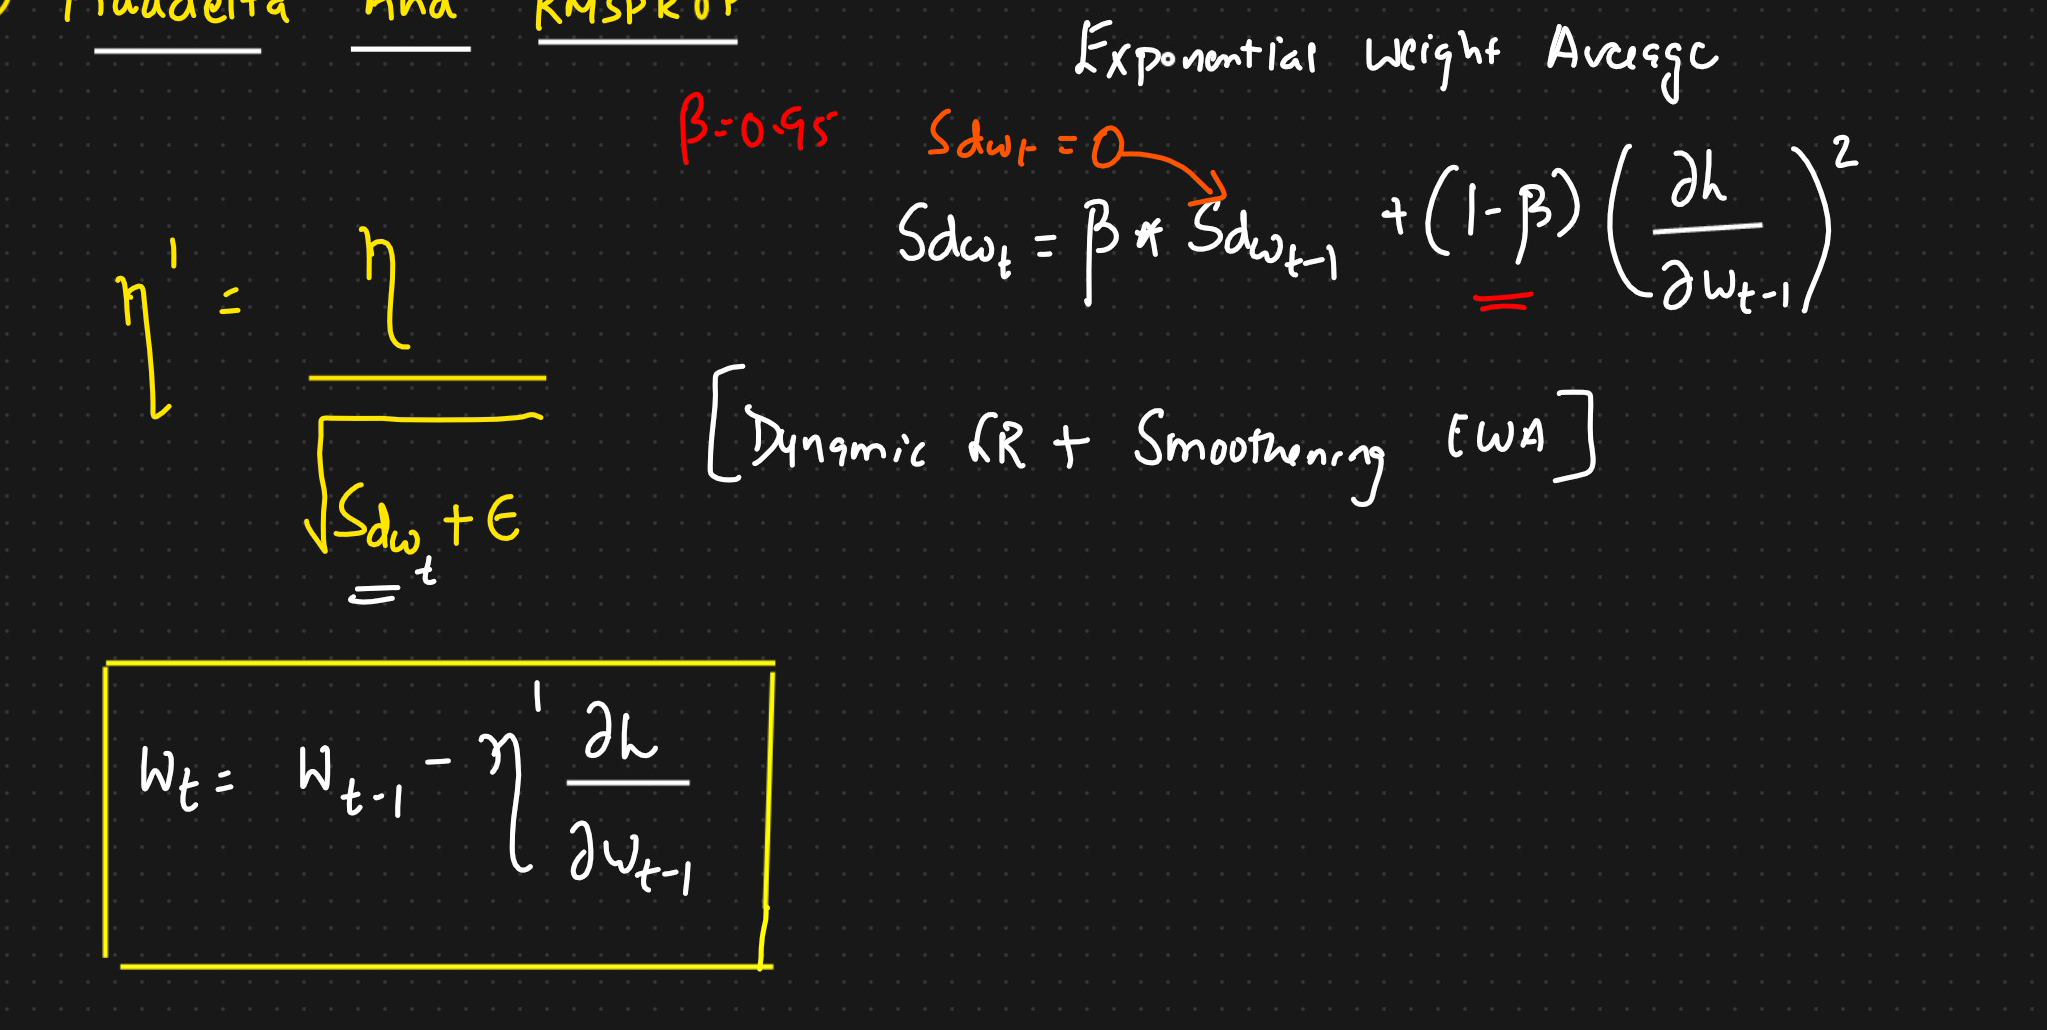 Adadelta And RMSPROP
Exponential Weight Average
β=0.95
Sdwt = 0
Sdwt = β * Sdwt-1 + (1-β) (∂h/∂wt-1)²
η' = η / √Sdwt + ϵ
[Dynamic LR + Smoothening EWA]
Wt = Wt-1 - η' ∂h/∂wt-1